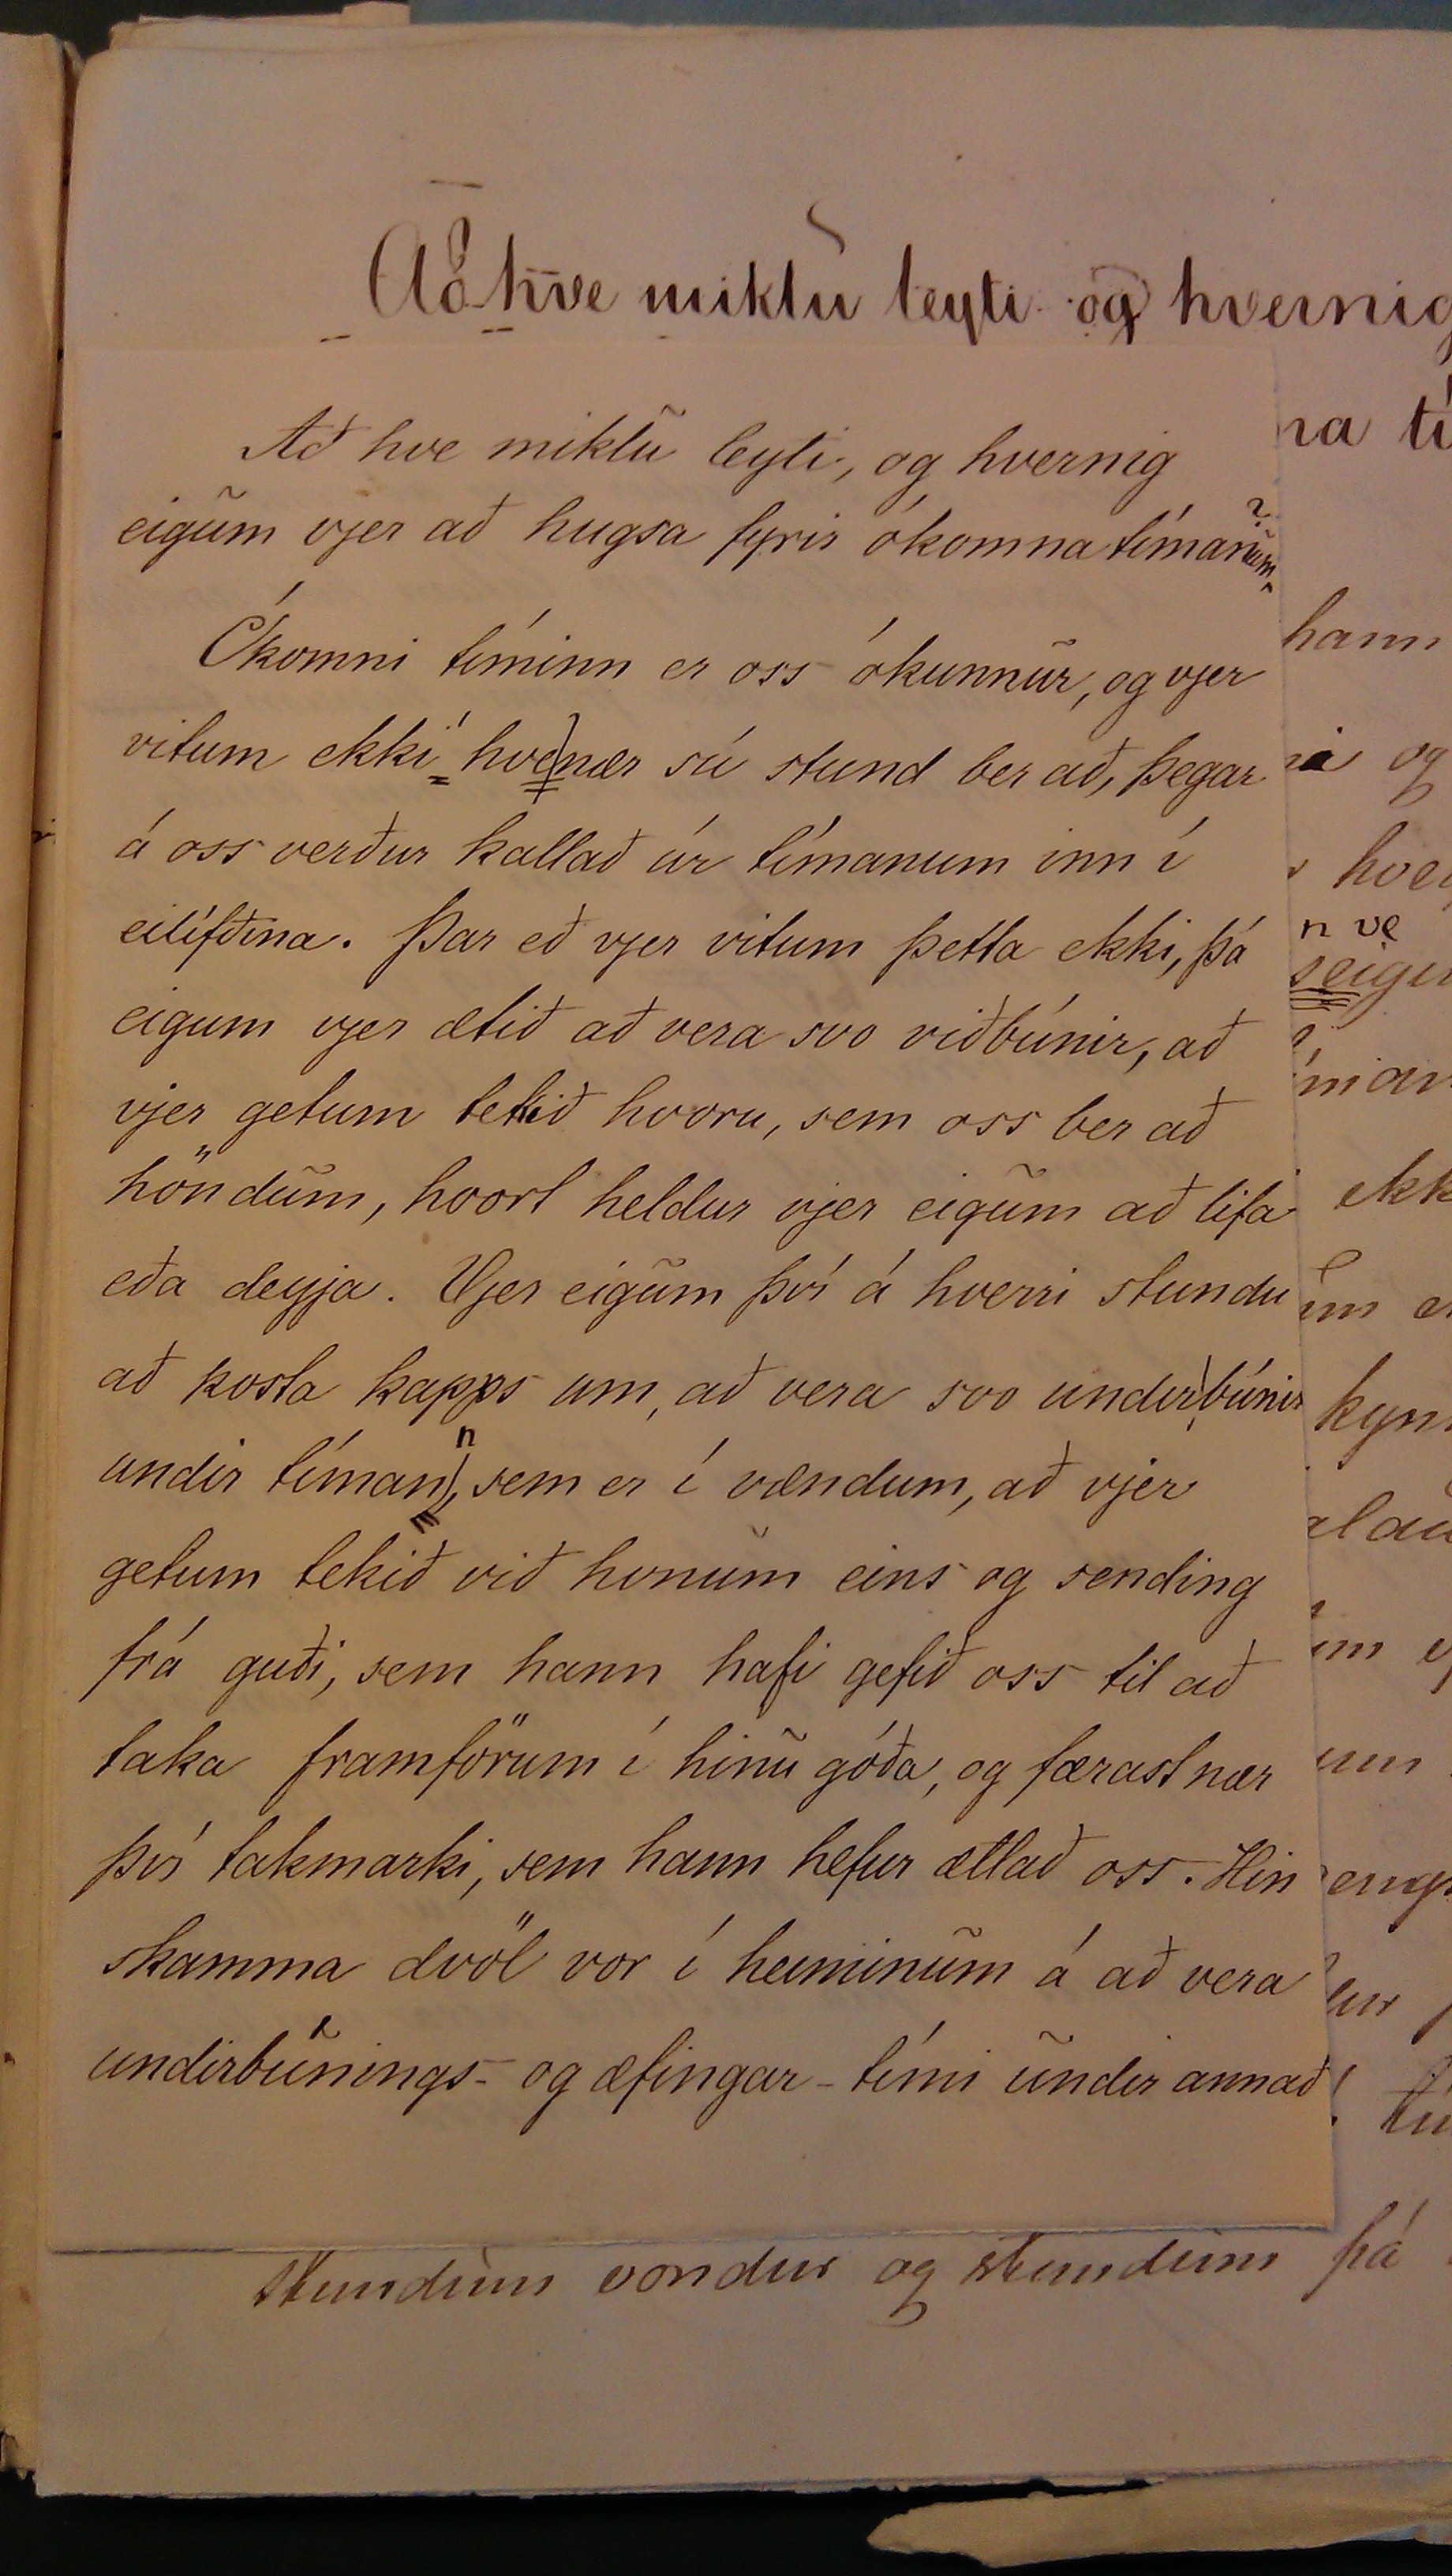 Að hve miklu leyti og hvernig
Að hve miklu leyti, og hvernig
eigum vjer að hugsa fyrir ókomna tímanum?
na tí
Ókomni tíminn er oss ókunnur, og vjer
hann
vitum ekki hvenær sú stund ber að, þegar
og
á oss verður kallað úr tímanum inn í
hver
eilífðina. Þar eð vjer vitum þetta ekki, þá
n ve
seigu
eigum vjer ætið að vera svo viðbúnir, að
vjer getum tekið hvoru, sem oss ber að
höndum, hvort heldur vjer eigum að lifa
ekk
eða deyja. Vjer eigum því á hverri stundu
að kosta kapps um, að vera svo undirbúnir
kyn
undir tímann, sem er í vændum, að vjer
getum tekið við honum eins og sending
frá guði, sem hann hafi gefið oss til að
taka framförum í hinu góða, og færast nær
því takmarki, sem hann hefur ætlað oss. Hin
eng
skamma dvöl vor í heiminum á að vera
undirbúnings- og æfingar-tími undir annað
stundum vondur og stundum þá